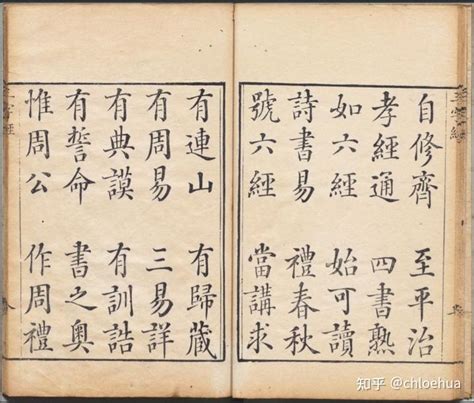 自修齊　至平治
孝經通　四書熟
如六經　始可讀
詩書易　禮春秋
號六經　當講求
有連山　有歸藏
有周易　三易詳
有典謨　有訓誥
有誓命　書之奧
惟周公　作周禮
知乎 @chloehua